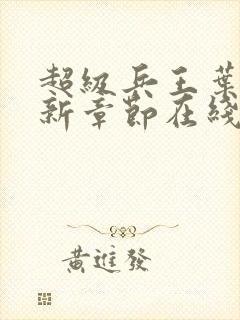 超級兵王葉
新章節在綫
黃進發